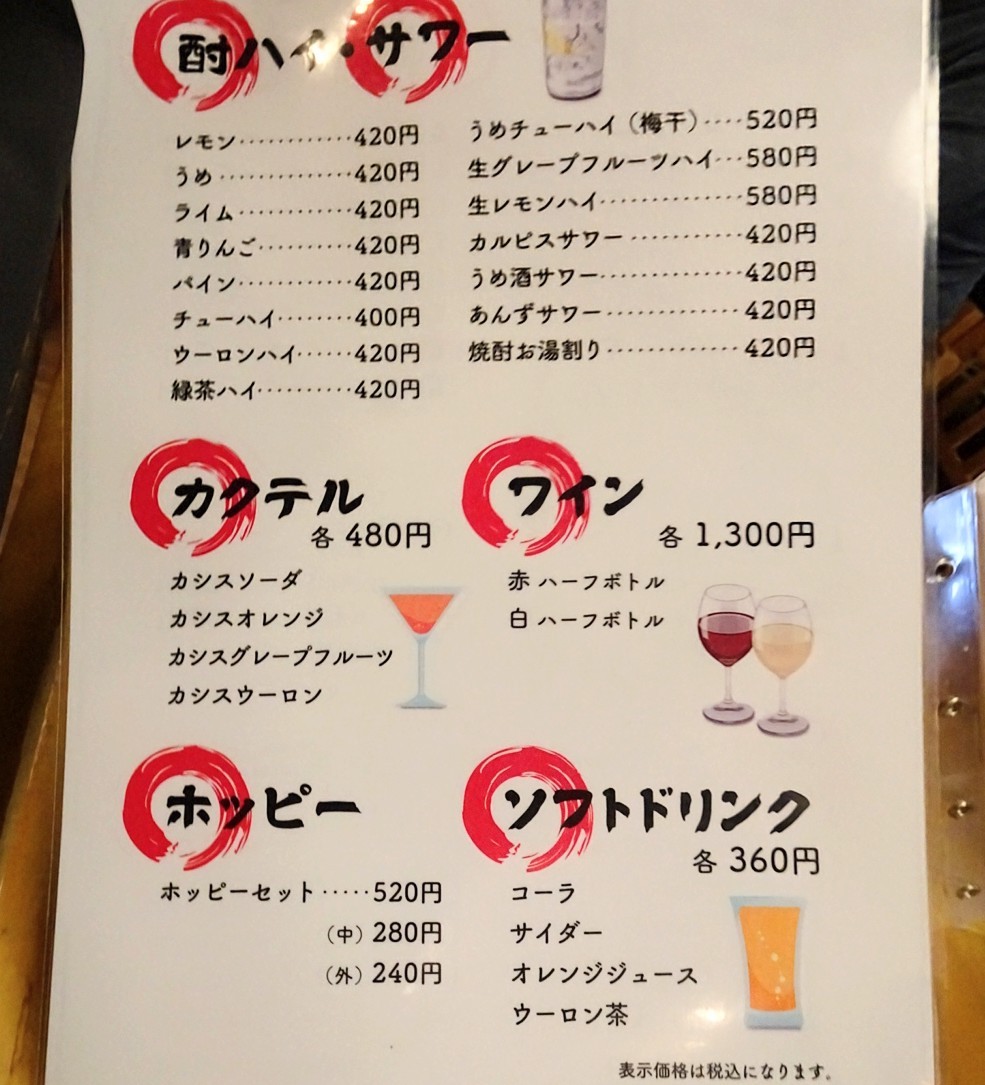 酎ハイ・サワー
レモン············420円
うめ··············420円
ライム············420円
青りんご··········420円
パイン············420円
チューハイ········400円
ウーロンハイ······420円
緑茶ハイ··········420円
うめチューハイ（梅干）····520円
生グレープフルーツハイ···580円
生レモンハイ··············580円
カルピスサワー············420円
うめ酒サワー··············420円
あんずサワー··············420円
焼酎お湯割り·············420円
カクテル
各 480円
カシスソーダ
カシスオレンジ
カシスグレープフルーツ
カシスウーロン
ワイン
各 1,300円
赤 ハーフボトル
白 ハーフボトル
ホッピー
ホッピーセット·····520円
（中）280円
（外）240円
ソフトドリンク
各 360円
コーラ
サイダー
オレンジジュース
ウーロン茶
表示価格は税込になります。